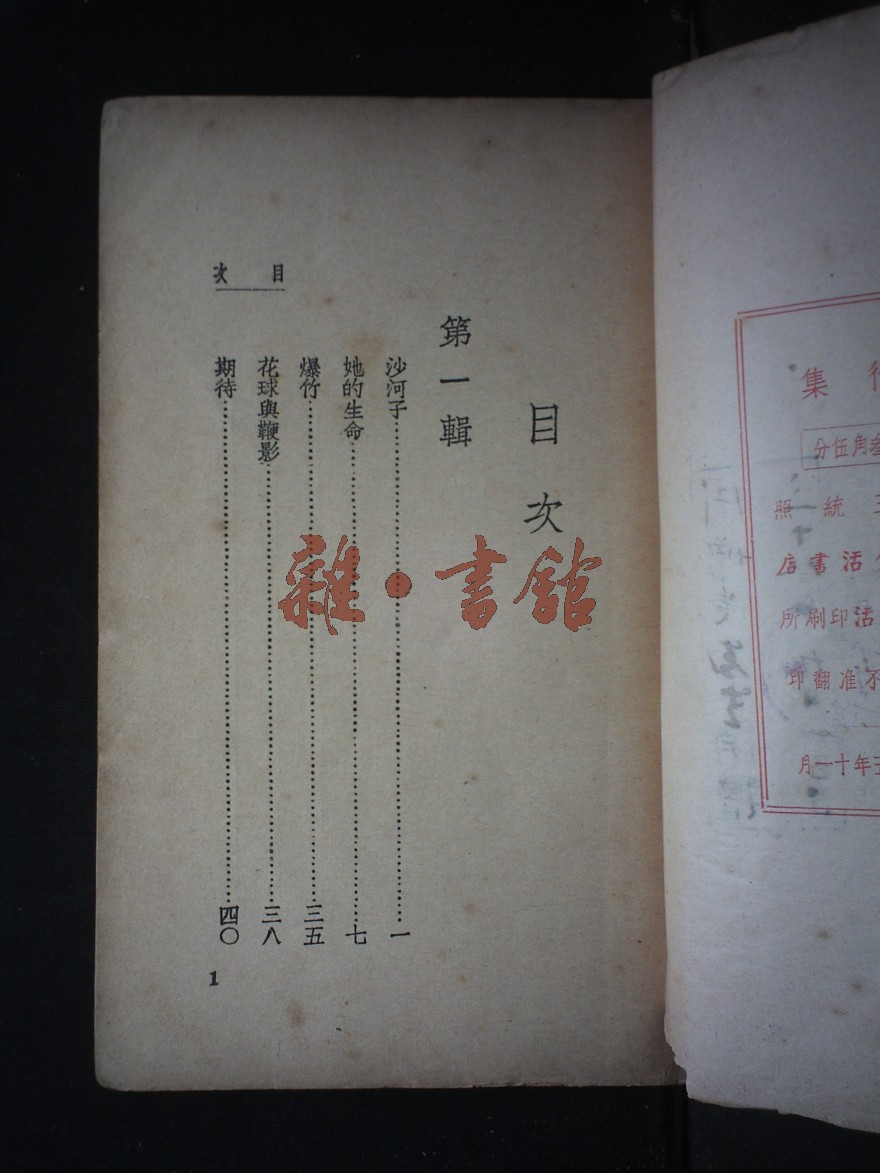 目次
第一輯
沙河子……一
她的生命……七
爆竹……三五
花球與鞭影……三八
期待……四〇
次 目
1
雜·書館
集
分伍角叁
照統
店書活
所刷印活
印翻准不
月一十年五